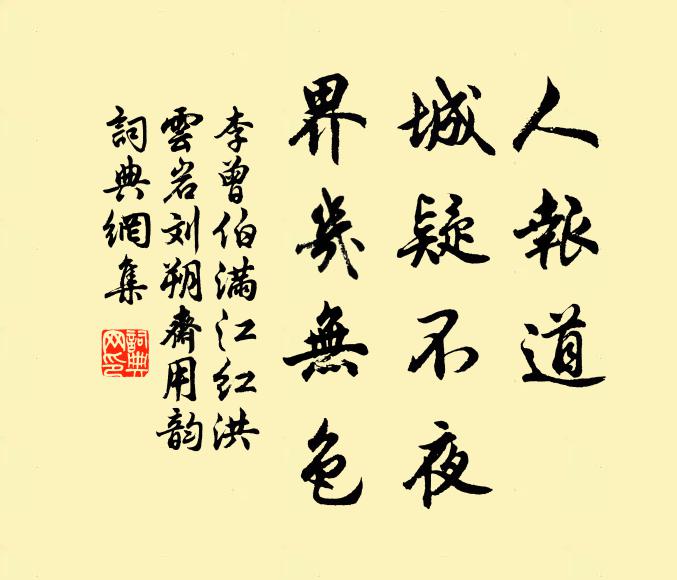 人報道
城疑不夜
界幾無色
李曾伯满江红洪
雲岩刘朔齋用韵
詞典網集
詞典網印